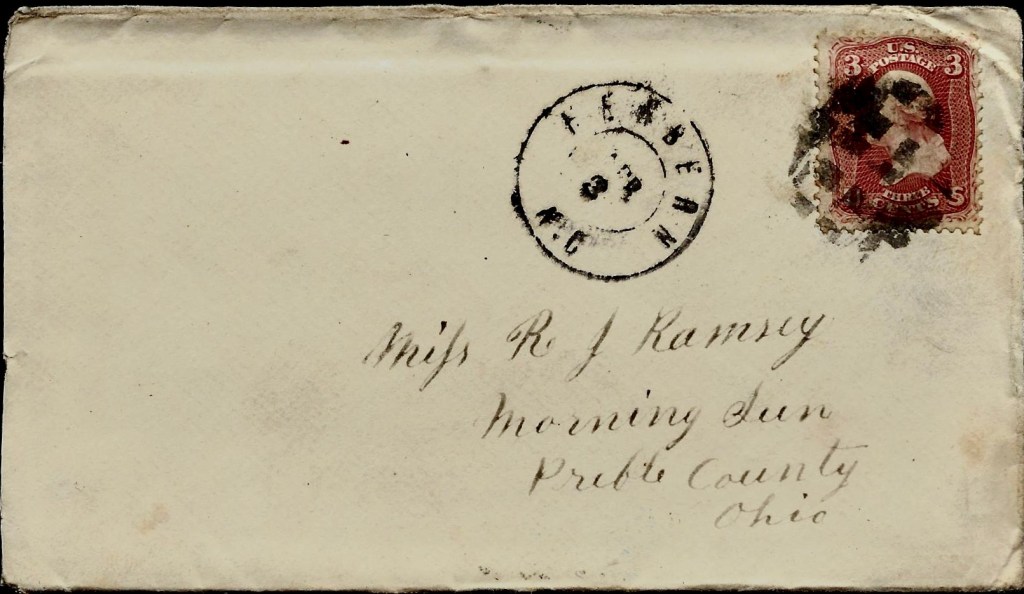 U.S.
POSTAGE
3 3
THREE
CENTS
NEWBERN
N.C
APR
3
Miſs R J Ramsey
Morning Sun
Preble County
Ohio